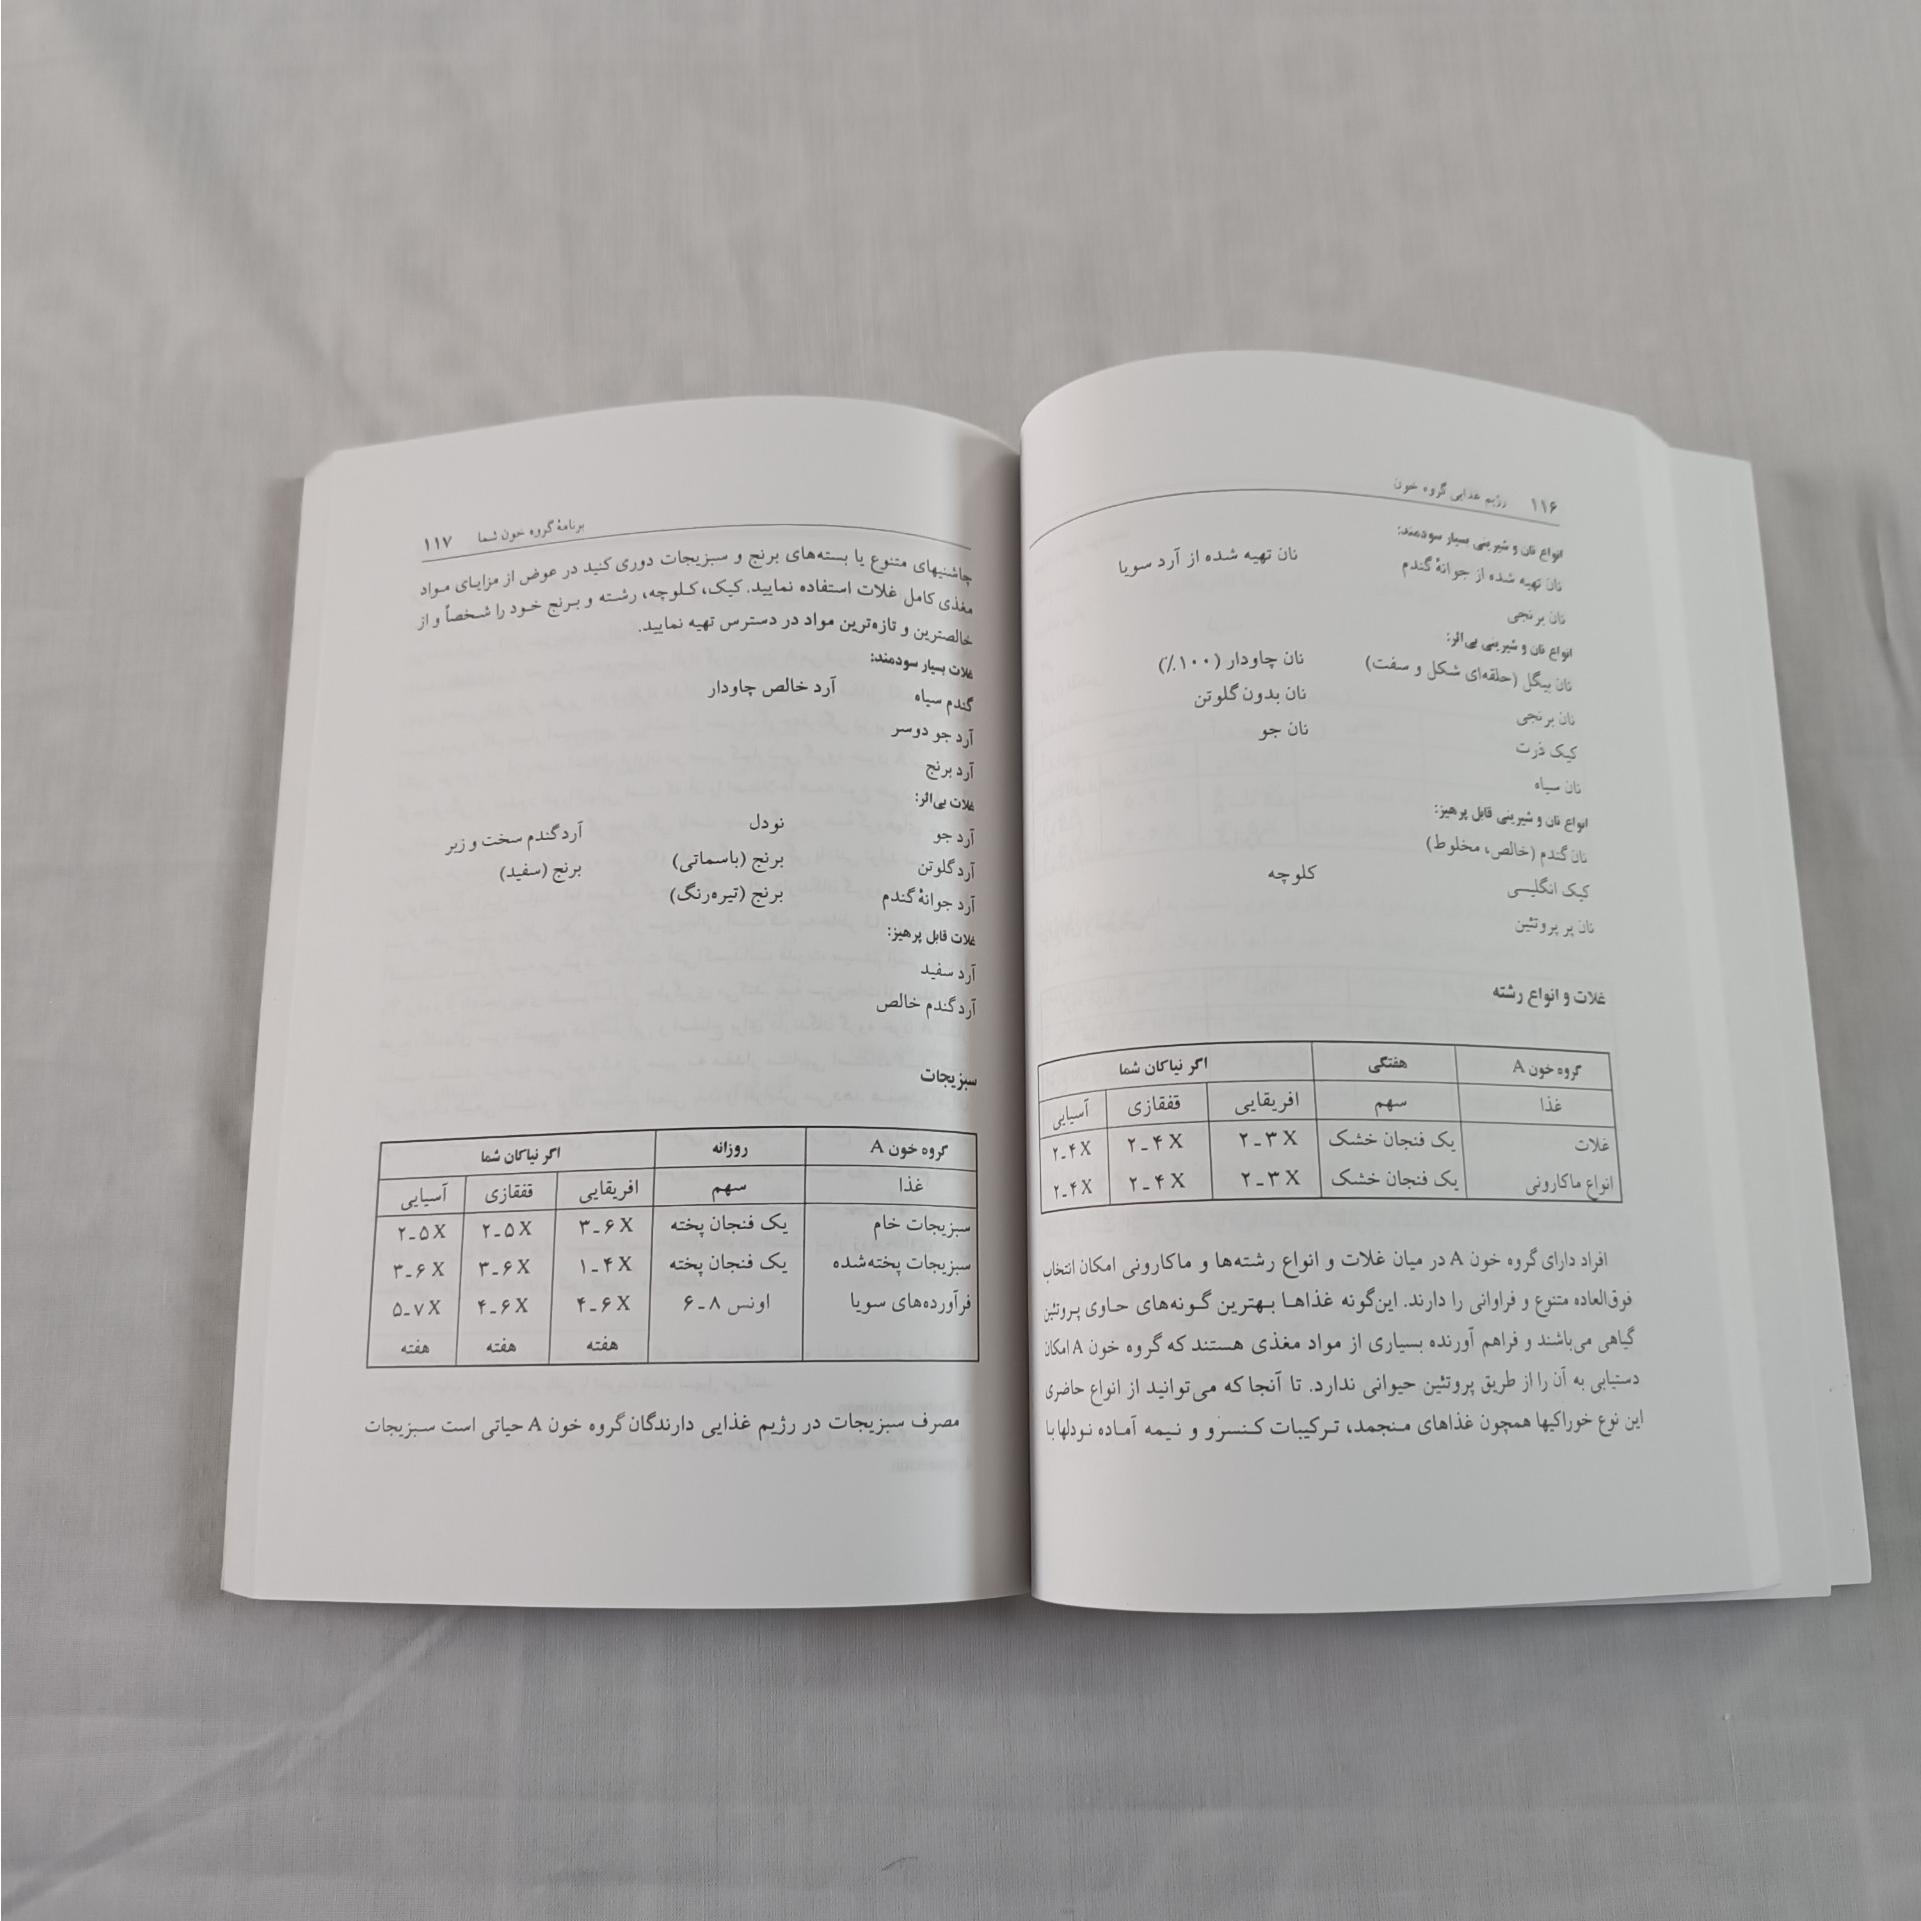 ۱۱۶ رژیم غذایی گروه خون
انواع نان و شیرینی بسیار سودمند:
نان تهیه شده از جوانهٔ گندم نان تهیه شده از آرد سویا
نان برنجی
انواع نان و شیرینی بی‌اثر:
نان بیگل (حلقه‌ای شکل و سفت) نان چاودار (۱۰۰٪)
نان برنجی نان بدون گلوتن
کیک ذرت نان جو
نان سیاه
انواع نان و شیرینی قابل پرهیز:
نان گندم (خالص، مخلوط)
کیک انگلیسی کلوچه
نان پر پروتئین
غلات و انواع رشته
گروه خون A هفتگی اگر نیاکان شما
غذا سهم افریقایی قفقازی آسیایی
غلات یک فنجان خشک ۲-۳ X ۲-۴ X ۲-۴ X
انواع ماکارونی یک فنجان خشک ۲-۳ X ۲-۴ X ۲-۴ X
افراد دارای گروه خون A در میان غلات و انواع رشته‌ها و ماکارونی امکان انتخاب
فوق‌العاده متنوع و فراوانی را دارند. این‌گونه غذاها بهترین گونه‌های حاوی پروتئین
گیاهی می‌باشند و فراهم آورنده بسیاری از مواد مغذی هستند که گروه خون A امکان
دستیابی به آن را از طریق پروتئین حیوانی ندارد. تا آنجا که می‌توانید از انواع حاضری
این نوع خوراکیها همچون غذاهای منجمد، ترکیبات کنسرو و نیمه آماده نودلها با
برنامهٔ گروه خون شما ۱۱۷
چاشنیهای متنوع یا بسته‌های برنج و سبزیجات دوری کنید در عوض از مزایای مواد
مغذی کامل غلات استفاده نمایید. کیک، کلوچه، رشته و برنج خود را شخصاً و از
خالصترین و تازه‌ترین مواد در دسترس تهیه نمایید.
غلات بسیار سودمند:
گندم سیاه آرد خالص چاودار
آرد جو دوسر
آرد برنج
غلات بی‌اثر:
آرد جو نودل آرد گندم سخت و زبر
آرد گلوتن برنج (باسماتی) برنج (سفید)
آرد جوانهٔ گندم برنج (تیره‌رنگ)
غلات قابل پرهیز:
آرد سفید
آرد گندم خالص
سبزیجات
گروه خون A روزانه اگر نیاکان شما
غذا سهم افریقایی قفقازی آسیایی
سبزیجات خام یک فنجان پخته ۳-۶ X ۲-۵ X ۲-۵ X
سبزیجات پخته‌شده یک فنجان پخته ۱-۴ X ۳-۶ X ۳-۶ X
فرآورده‌های سویا ۶-۸ اونس ۴-۶ X ۴-۶ X ۵-۷ X
هفته هفته هفته
مصرف سبزیجات در رژیم غذایی دارندگان گروه خون A حیاتی است سبزیجات